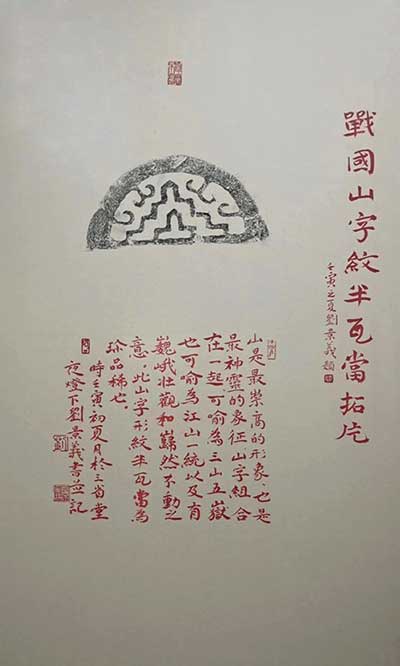 戰國山字紋半瓦當拓片
壬寅之夏劉景義題
山是最崇高的形象、也是
最神靈的象征山字組合
在一起可喻為三山五嶽
也可喻為江山一統以及有
巍峨壯觀和巋然不動之
意，此山字形紋半瓦當為
珍品稀也、
時壬寅初夏月於三省堂
夜燈下劉景義書並記